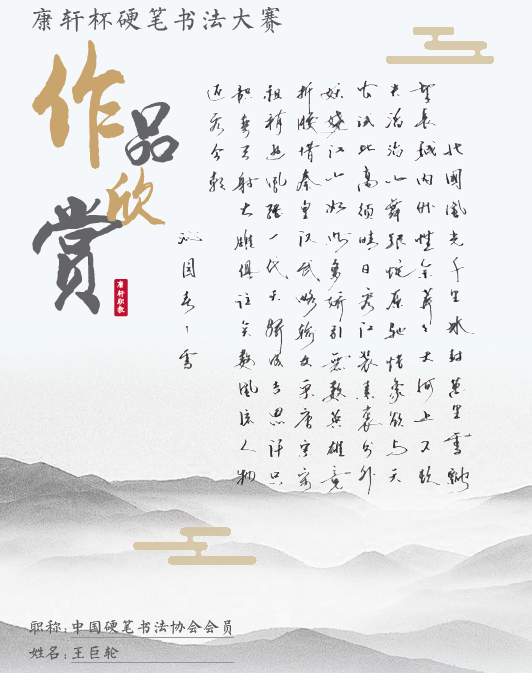 康轩杯硬笔书法大赛
作品欣赏
康轩职教
北國風光千里冰封萬里雪飄
望長城内外惟余莽々大河上下頓
失滔滔山舞銀蛇原馳蜡象欲与天
公試比高須晴日看红裝素裹分外
妖嬈江山如此多嬌引無數英雄竞
折腰惜秦皇汉武略輸文采唐宗宋
祖稍遜風骚一代天驕成吉思汗只
識彎弓射大雕俱往矣數風流人物
还看今朝
沁园春、雪
职称:中国硬笔书法协会会员
姓名:王巨轮